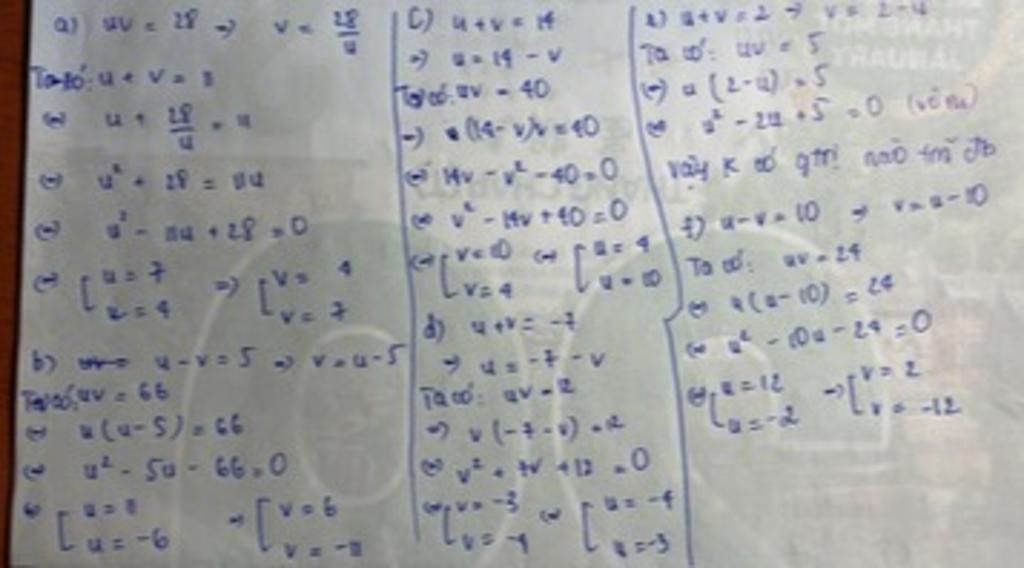 a) uv = 28 => v = 28/u
Ta có: u + v = 11
<=> u + 28/u = 11
<=> u² + 28 = 11u
<=> u² - 11u + 28 = 0
<=> [ u = 7 => [ v = 4
u = 4 v = 7
b) u - v = 5 => v = u - 5
Ta có: uv = 66
<=> u(u - 5) = 66
<=> u² - 5u - 66 = 0
<=> [ u = 11 => [ v = 6
u = -6 v = -11
c) u + v = 14
=> u = 14 - v
Ta có: uv = 40
=> (14 - v)v = 40
<=> 14v - v² - 40 = 0
<=> v² - 14v + 40 = 0
<=> [ v = 10 <=> [ u = 4
v = 4 u = 10
d) u + v = -7
=> u = -7 - v
Ta có: uv = 12
=> v(-7 - v) = 12
<=> v² + 7v + 12 = 0
<=> [ v = -3 <=> [ u = -4
v = -4 u = -3
e) u + v = 2 => v = 2 - u
Ta có: uv = 5
<=> u(2 - u) = 5
<=> u² - 2u + 5 = 0 (vô lí)
Vậy K có gtrị nào tm đb
f) u - v = 10 => v = u - 10
Ta có: uv = 24
<=> u(u - 10) = 24
<=> u² - 10u - 24 = 0
<=> [ u = 12 => [ v = 2
u = -2 v = -12